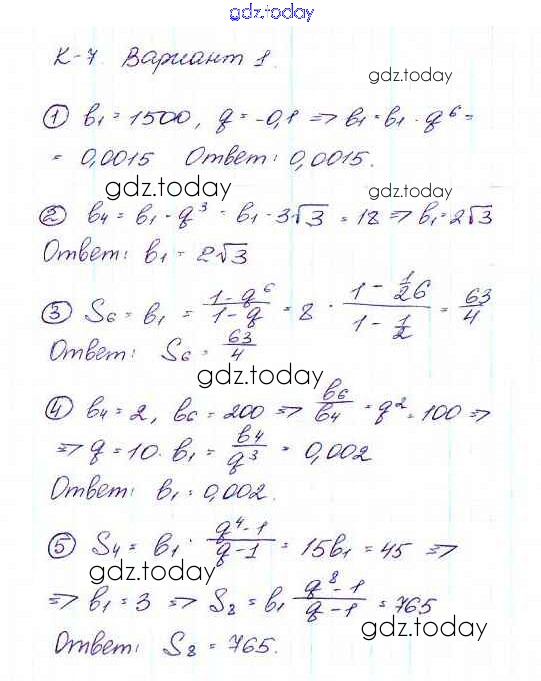 gdz.today
gdz.today
К-7. Вариант 1.
gdz.today
① b₁ = 1500, q = -0,1 => b₁ = b₁ · q⁶ =
= 0,0015 Ответ: 0,0015.
gdz.today gdz.today
② b₄ = b₁ · q³ = b₁ · 3√3 = 18 => b₁ = 2√3
Ответ: b₁ = 2√3
③ S₆ = b₁ = (1-q⁶)/(1-q) = 8 · (1 - 1/26)/(1 - 1/2) = 63/4
Ответ: S₆ = 63/4
gdz.today
④ b₄ = 2, b₆ = 200 => b₆/b₄ = q² = 100 =>
=> q = 10 · b₁ = b₄/q³ = 0,002
Ответ: b₁ = 0,002.
gdz.today
⑤ S₄ = b₁ · (q⁴-1)/(q-1) = 15b₁ = 45 =>
gdz.today
=> b₁ = 3 => S₈ = b₁ (q⁸-1)/(q-1) = 765
gdz.today
Ответ: S₈ = 765.